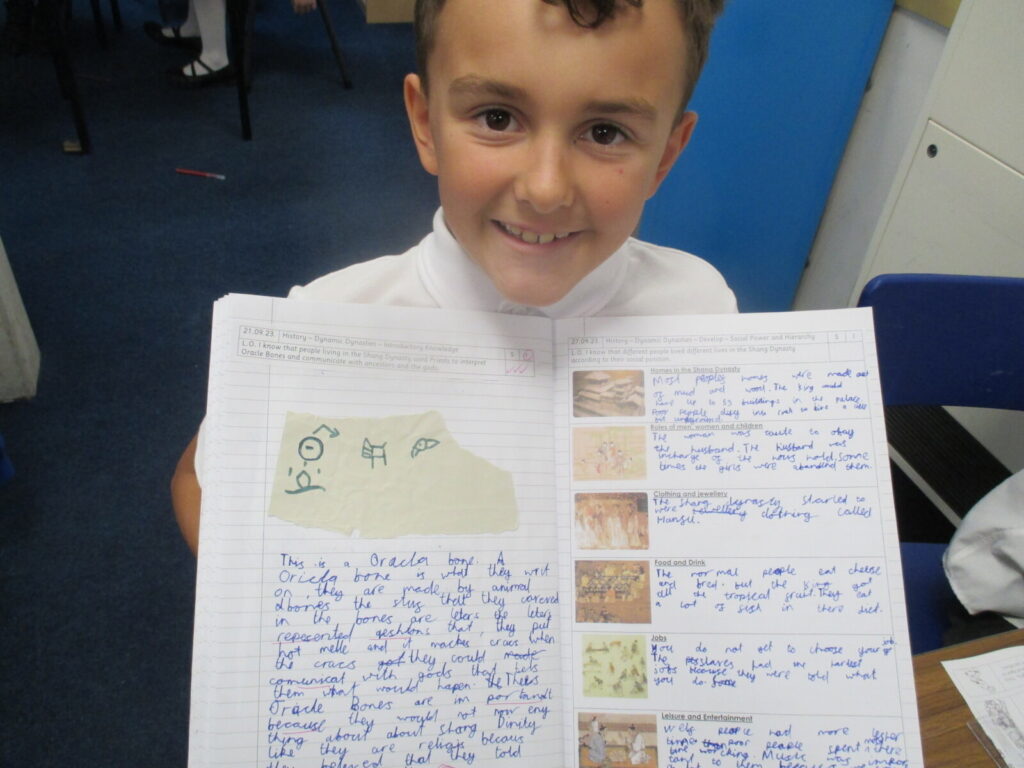 21.09.23. History – Dynamic Dynasties – Introductory Knowledge
L.O. I know that people living in the Shang Dynasty used Priests to interpret
Oracle Bones and communicate with ancestors and the gods.
S
This is a Oracla bone. A
Oricla bone is what they writ
on, they are made by animal
bones the that they carved
in the bones are leters the leters
repecented qeshtons that they put
hot melle and it maches cracs when
the cracs they could made
comunicat with gods that
them what would hapen.
Oracle Bones are im por tandt
because they would not now eny
thing about about Shang Dinity
like they are religis becaus
they beleved that they told
27.09.23. History – Dynamic Dynasties – Develop – Social Power and Hierarchy
S I
L.O. I know that different people lived different lives in the Shang Dynasty
according to their social position.
Homes in the Shang Dynasty
Most peoples homes were made out
of mud and wood. The king could
have up to 53 buildings in the palace
Poor people
underground
Roles of men, women and children
The woman was to obay
the husband. The husband was
incharge of the hous hold, some
times the girls were
Clothing and jewellery
The Shang Dynasty started to
were jewellery clothing called
Hanfu.
Food and Drink
The normal people eat cheese
and bred. but the king got
all the tropical fruit. They eat
a lot of fish in there diet.
Jobs
You do not get to choose your job.
The slaves had the hardest
Jobs because they were told what
you do
Leisure and Entertainment
people had more lesher
time than poor people most
time working. Music was